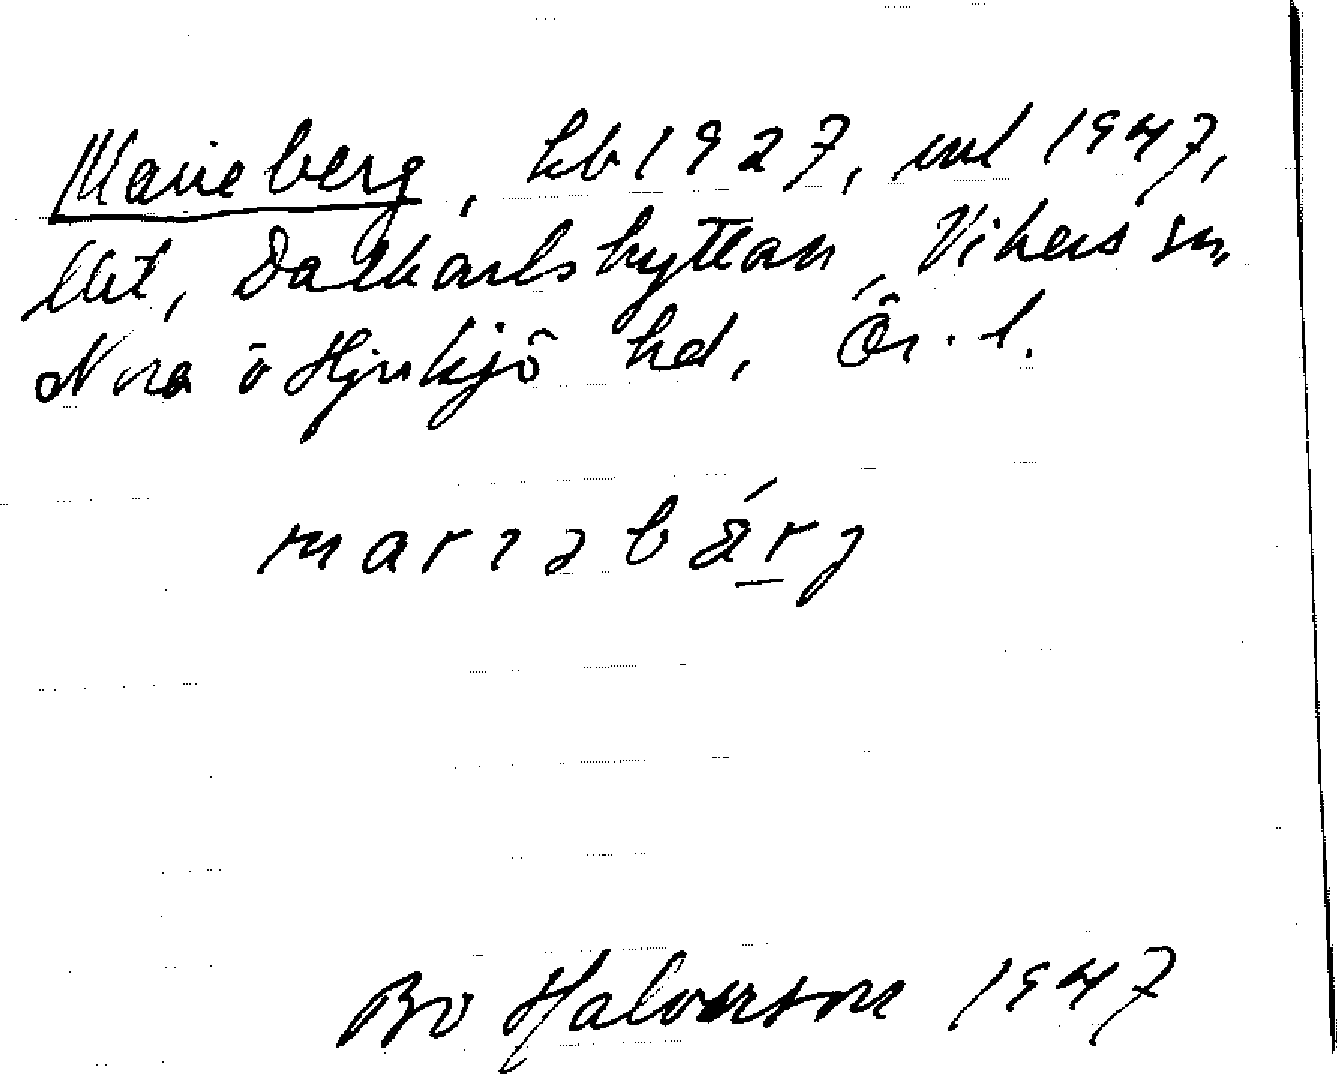 Marieberg, kb 1927, uml 1947,
Dalkarlshyttan, Vikers sn,
Nora o Hjulsjö hd, Ör. l.
mariabärj
Bo Halvarson 1947